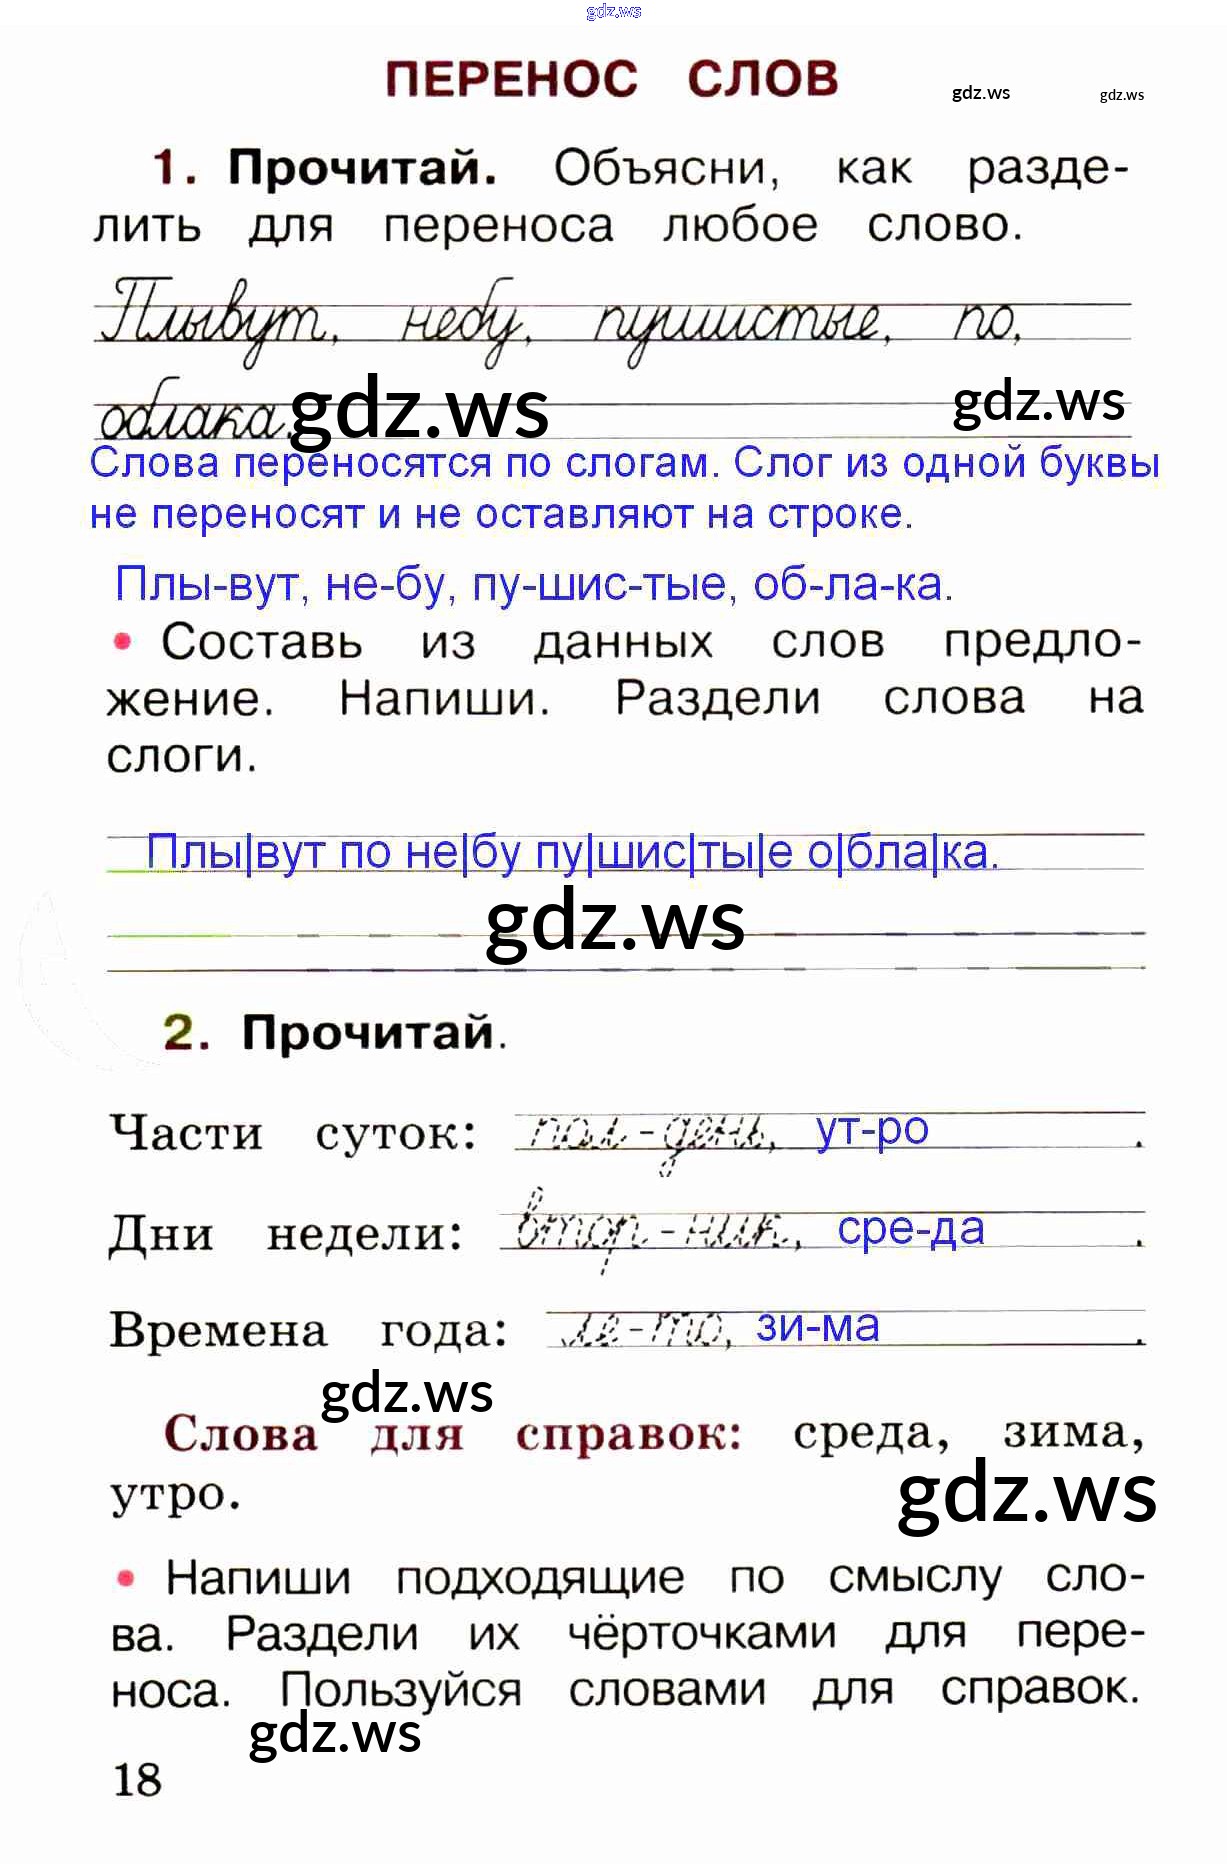 gdz.ws
ПЕРЕНОС СЛОВ
gdz.ws
gdz.ws
1. Прочитай. Объясни, как разде-
лить для переноса любое слово.
Плывут, небу, пушистые, по,
облака.
gdz.ws
gdz.ws
Слова переносятся по слогам. Слог из одной буквы
не переносят и не оставляют на строке.
Плы-вут, не-бу, пу-шис-тые, об-ла-ка.
• Составь из данных слов предло-
жение. Напиши. Раздели слова на
слоги.
Плы|вут по не|бу пу|шис|ты|е о|бла|ка.
gdz.ws
2. Прочитай.
Части суток: пол-день, ут-ро .
Дни недели: втор-ник, сре-да .
Времена года: ле-то, зи-ма .
gdz.ws
Слова для справок: среда, зима,
утро.
gdz.ws
• Напиши подходящие по смыслу сло-
ва. Раздели их чёрточками для пере-
носа. Пользуйся словами для справок.
gdz.ws
18